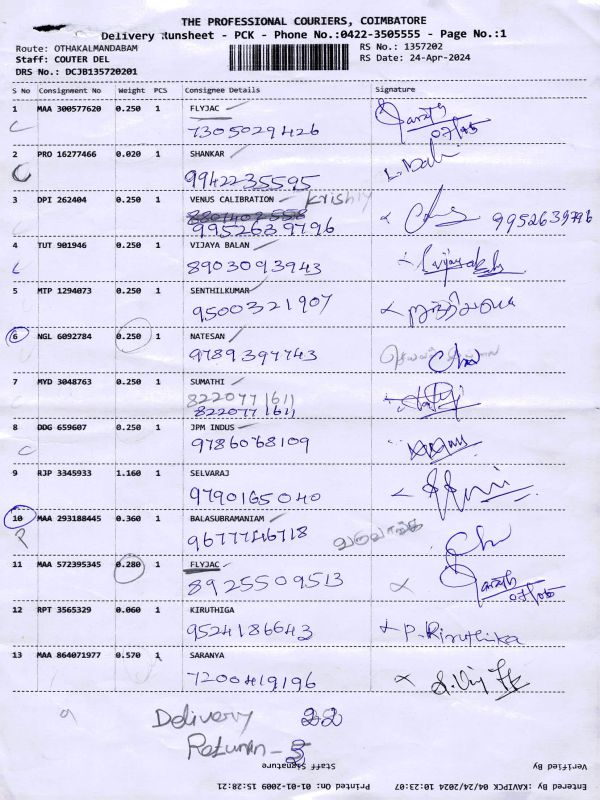 THE PROFESSIONAL COURIERS, COIMBATORE
Delivery Runsheet - PCK - Phone No.:0422-3505555 - Page No.:1
Route: OTHAKALMANDABAM RS No.: 1357202
Staff: COUTER DEL RS Date: 24-Apr-2024
DRS No.: DCJB135720201
S No Consignment No Weight PCS Consignee Details Signature
1 MAA 300577620 0.250 1 FLYJAC
7305029426
2 PRO 16277466 0.020 1 SHANKAR
9942235595
3 DPI 262404 0.250 1 VENUS CALIBRATION
9952639796 9952639796
4 TUT 901946 0.250 1 VIJAYA BALAN
8903093943
5 MTP 1294073 0.250 1 SENTHILKUMAR
9500321907
6 NGL 6092784 0.250 1 NATESAN
9789397743
7 MYD 3048763 0.250 1 SUMATHI
8220771611
8220771611
8 DDG 659607 0.250 1 JPM INDUS
9786068109
9 RJP 3345933 1.160 1 SELVARAJ
9790165040
10 MAA 293188445 0.360 1 BALASUBRAMANIAM
9677746718
11 MAA 572395345 0.280 1 FLYJAC
8925509513
12 RPT 3565329 0.060 1 KIRUTHIGA
9524186643 P. Kiruthika
13 MAA 864071977 0.570 1 SARANYA
7200419196
Delivery 22
Return - 3
Staff Signature Verified By
Printed On: 01-01-2009 15:28:21 Entered By: KAVIPCK 04/24/2024 10:23:07